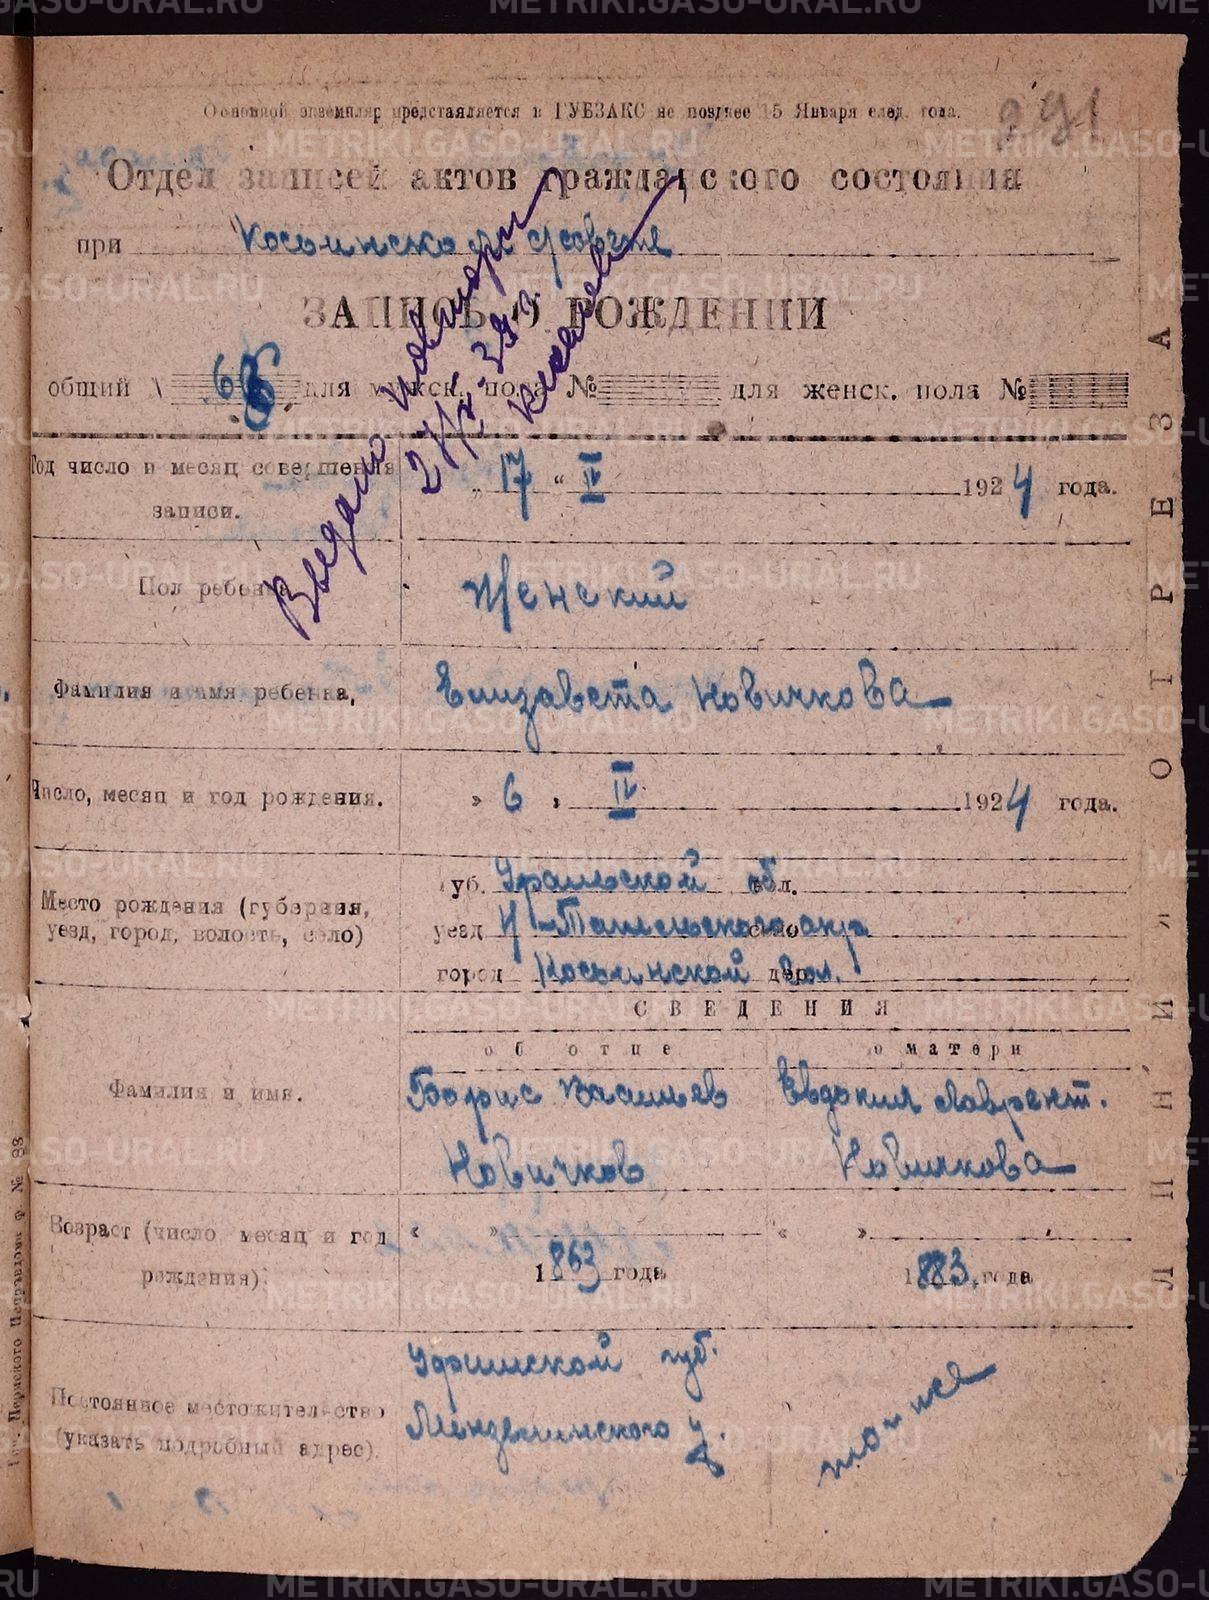 Основной экземпляр представляется в ГУБЗАКС не позднее 15 Января след. года.
291
Отдел записей актов гражданского состояния
при Косьинском
ЗАПИСЬ О РОЖДЕНИИ
общий № 68 для мужск. пола № для женск. пола №
Выдано повторн
27/IX-39 г.
Год число и месяц совершения
записи.
„ 17 “ IV 1924 года.
Пол ребенка
Женский
Фамилия и имя ребенка,
Елизавета Новичкова
Число, месяц и год рождения.
» 6 » IV 1924 года.
Место рождения (губерния,
уезд, город, волость, село)
губ. Уральской обл.
уезд Н-Тагильского окр село
город Косьинской вол. дер.
СВЕДЕНИЯ
об отце
о матери
Фамилия и имя.
Борис Васильев
Новичков
Евдокия Лаврент.
Новичкова
Возраст (число, месяц и год
рождения).
« »
1863 года
« »
1883 года
Постоянное местожительство
(указать подробный адрес).
Уфимской губ.
Мензелинского у.
тоже
ЛИНИЯ ОТРЕЗА
Тип. Пермского Исправдома ф № 88
METRIKI.GASO-URAL.RU